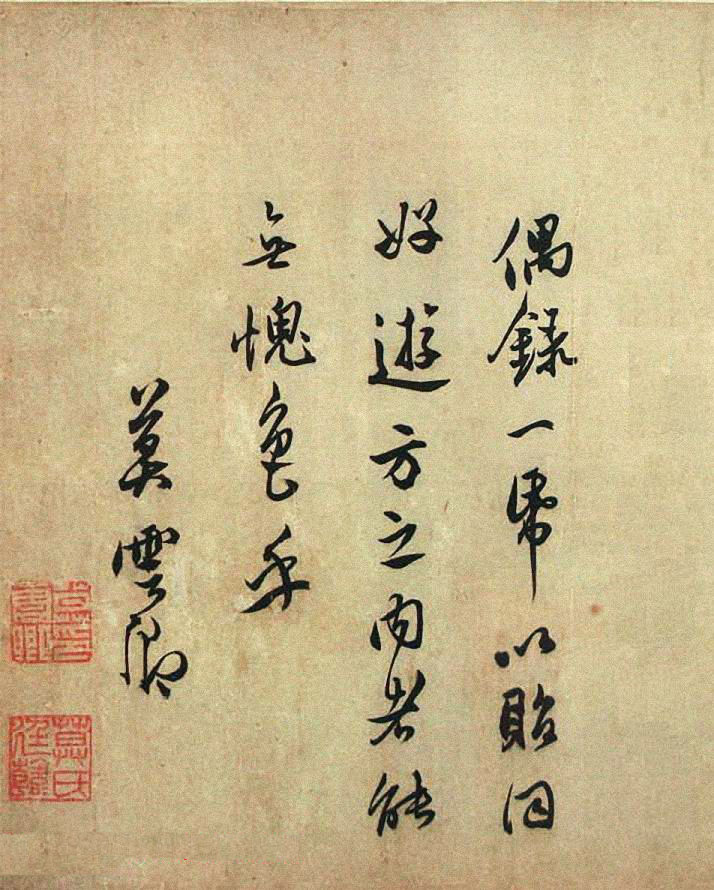 偶錄一帋以貽同
好遊方之內者能
無愧色乎
莫雲卿
莫氏廷韓